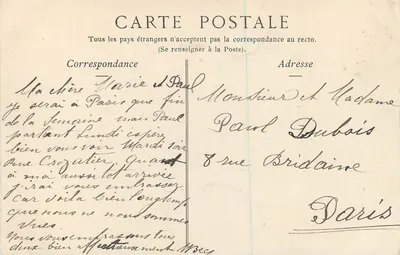 CARTE POSTALE
Tous les pays étrangers n'acceptent pas la correspondance au recto.
(Se renseigner à la Poste).
Correspondance
Ma chère Marie et Paul
je serai à Paris que fin
de la semaine mais Paul
partant Lundi espère
bien vous voir Mardi soir
rue Crozatier, Quant
à moi aussitôt arrivée
j'irai vous embrasser
car voilà bien longtemps
que nous ne nous sommes
vues.
Nous vous embrassons tous
deux bien affectueusement
Adresse
Monsieur et Madame
Paul Dubois
8 rue Bridaine
Paris